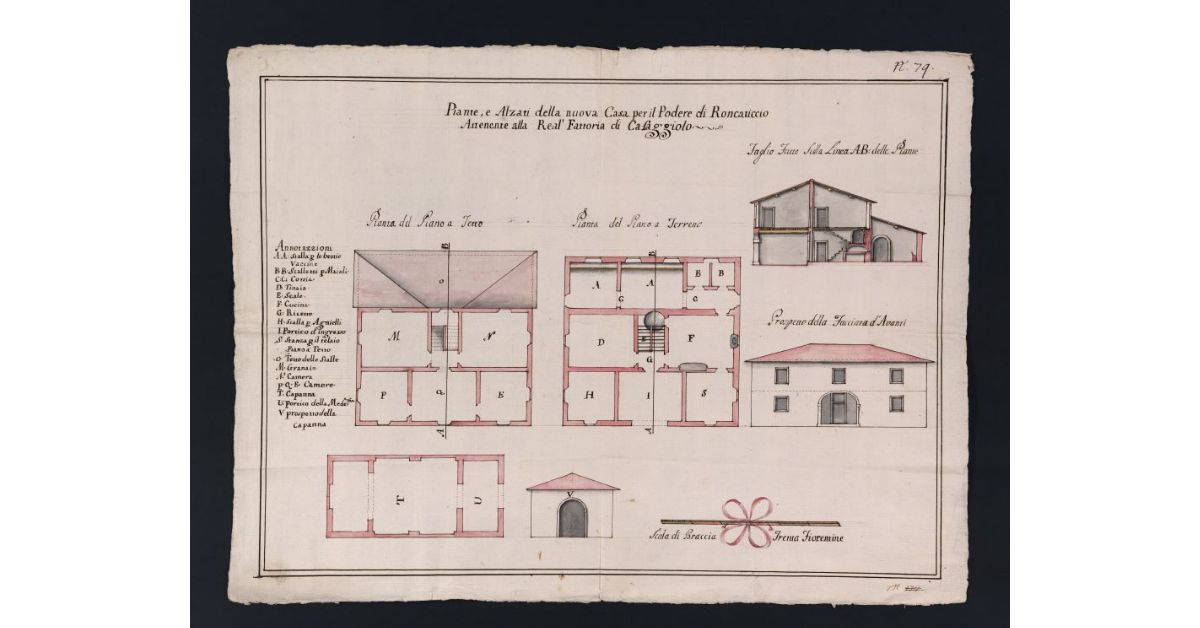 N.º 79.
Piante, e Alzati della nuova Casa per il Podere di Roncaticcio
Attenente alla Real' Fattoria di Cafaggiolo
Taglio Fatto Sulla Linea A.B. delle Piante
Pianta del Piano a Tetto
Pianta del Piano a Terreno
Annotazzioni
A A. Stalla p le bestie
Vaccine
B B. Stalletti p Maiali
C. Corria
D. Tinaia
E. Scale
F. Cucina
G. Ricetto
H. Stalla p Agnielli
I. Portico d'ingresso
S. Stanza p il telaio
Piano a Tetto
O. Tetto delle Stalle
M. Granaio
N. Camera
P. Q. E. Camere
T. Capanna
U. Portico della Med.
V prospetto della
Capanna
B
O
M
N
P
Q
E
A
B
A
A
B
B
G
C
D
E
F
G
H
I
S
A
Prospetto della Facciata d'Avanti
T
U
V
Scala di Braccia
Trenta Fiorentine